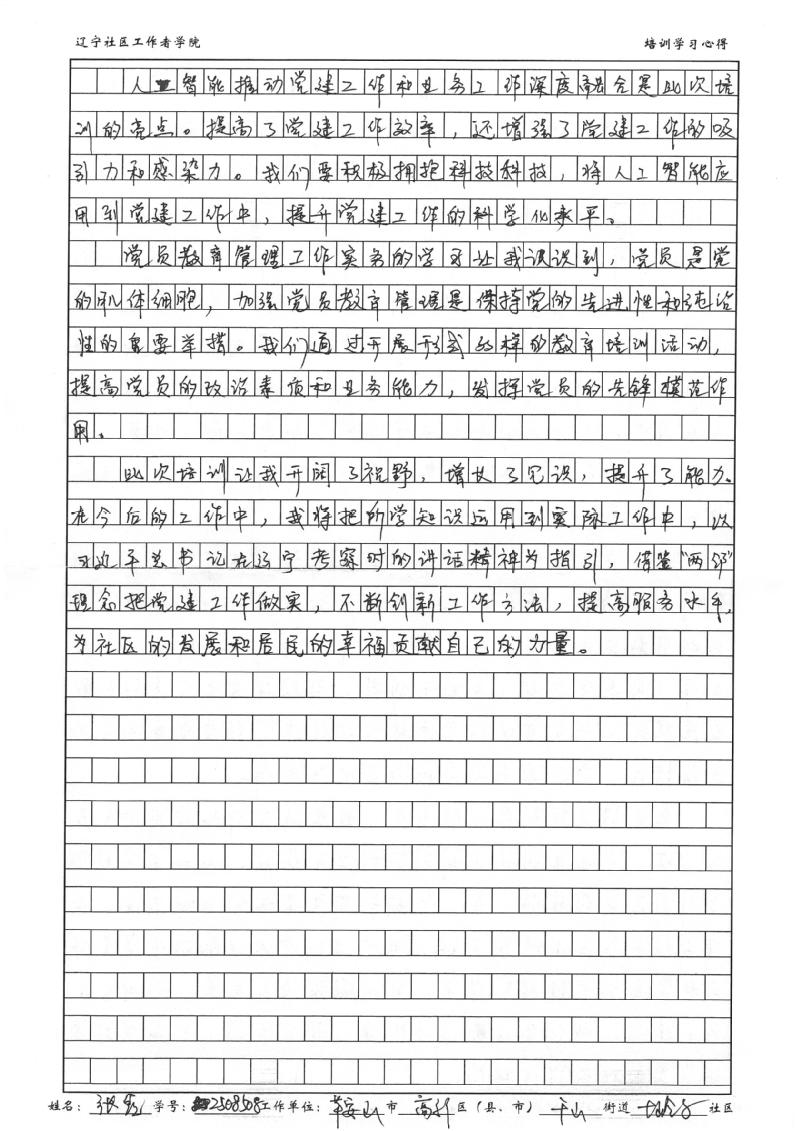 辽宁社区工作者学院 培训学习心得
人工智能推动党建工作和业务工作深度融合是此次培
训的亮点。提高了党建工作效率，还增强了党建工作的吸
引力和感染力。我们要积极拥抱科技科技，将人工智能应
用到党建工作中，提升党建工作的科学化水平。
党员教育管理工作实务的学习让我认识到，党员是党
的肌体细胞，加强党员教育管理是保持党的先进性和纯洁
性的重要举措。我们通过开展形式多样的教育培训活动，
提高党员的政治素质和业务能力，发挥党员的先锋模范作
用。
此次培训让我开阔了视野，增长了见识，提升了能力。
在今后的工作中，我将把所学知识运用到实际工作中，以
习近平总书记在辽宁考察时的讲话精神为指引，借鉴“两邻”
理念把党建工作做实，不断创新工作方法，提高服务水平，
为社区的发展和居民的幸福贡献自己的力量。
姓名：张 学号：2508508工作单位：鞍山市 高新区（县、市） 千山 街道 社区